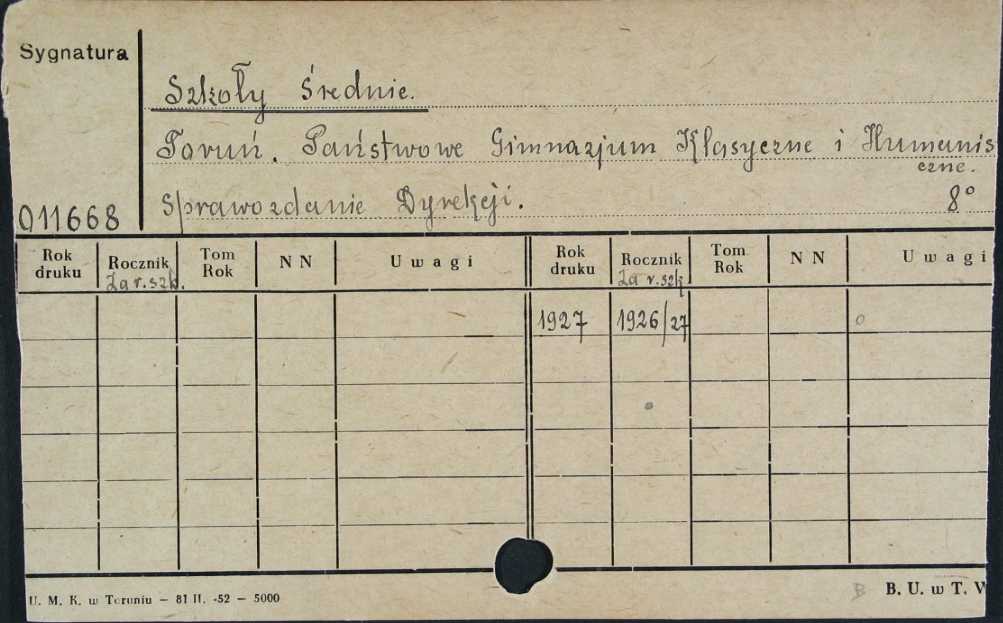 Sygnatura
Szkoły Średnie.
Toruń. Państwowe Gimnazjum Klasyczne i Humanis
czne.
Sprawozdanie Dyrekcji. 8°
011668
Rok druku Rocznik Tom Rok NN Uwagi Rok druku Rocznik Tom Rok NN Uwagi
Za r. szk. Za r. szk
1927 1926/27 o
U. M. K. w Toruniu — 81 II. -52 — 5000
B B. U. w T. W